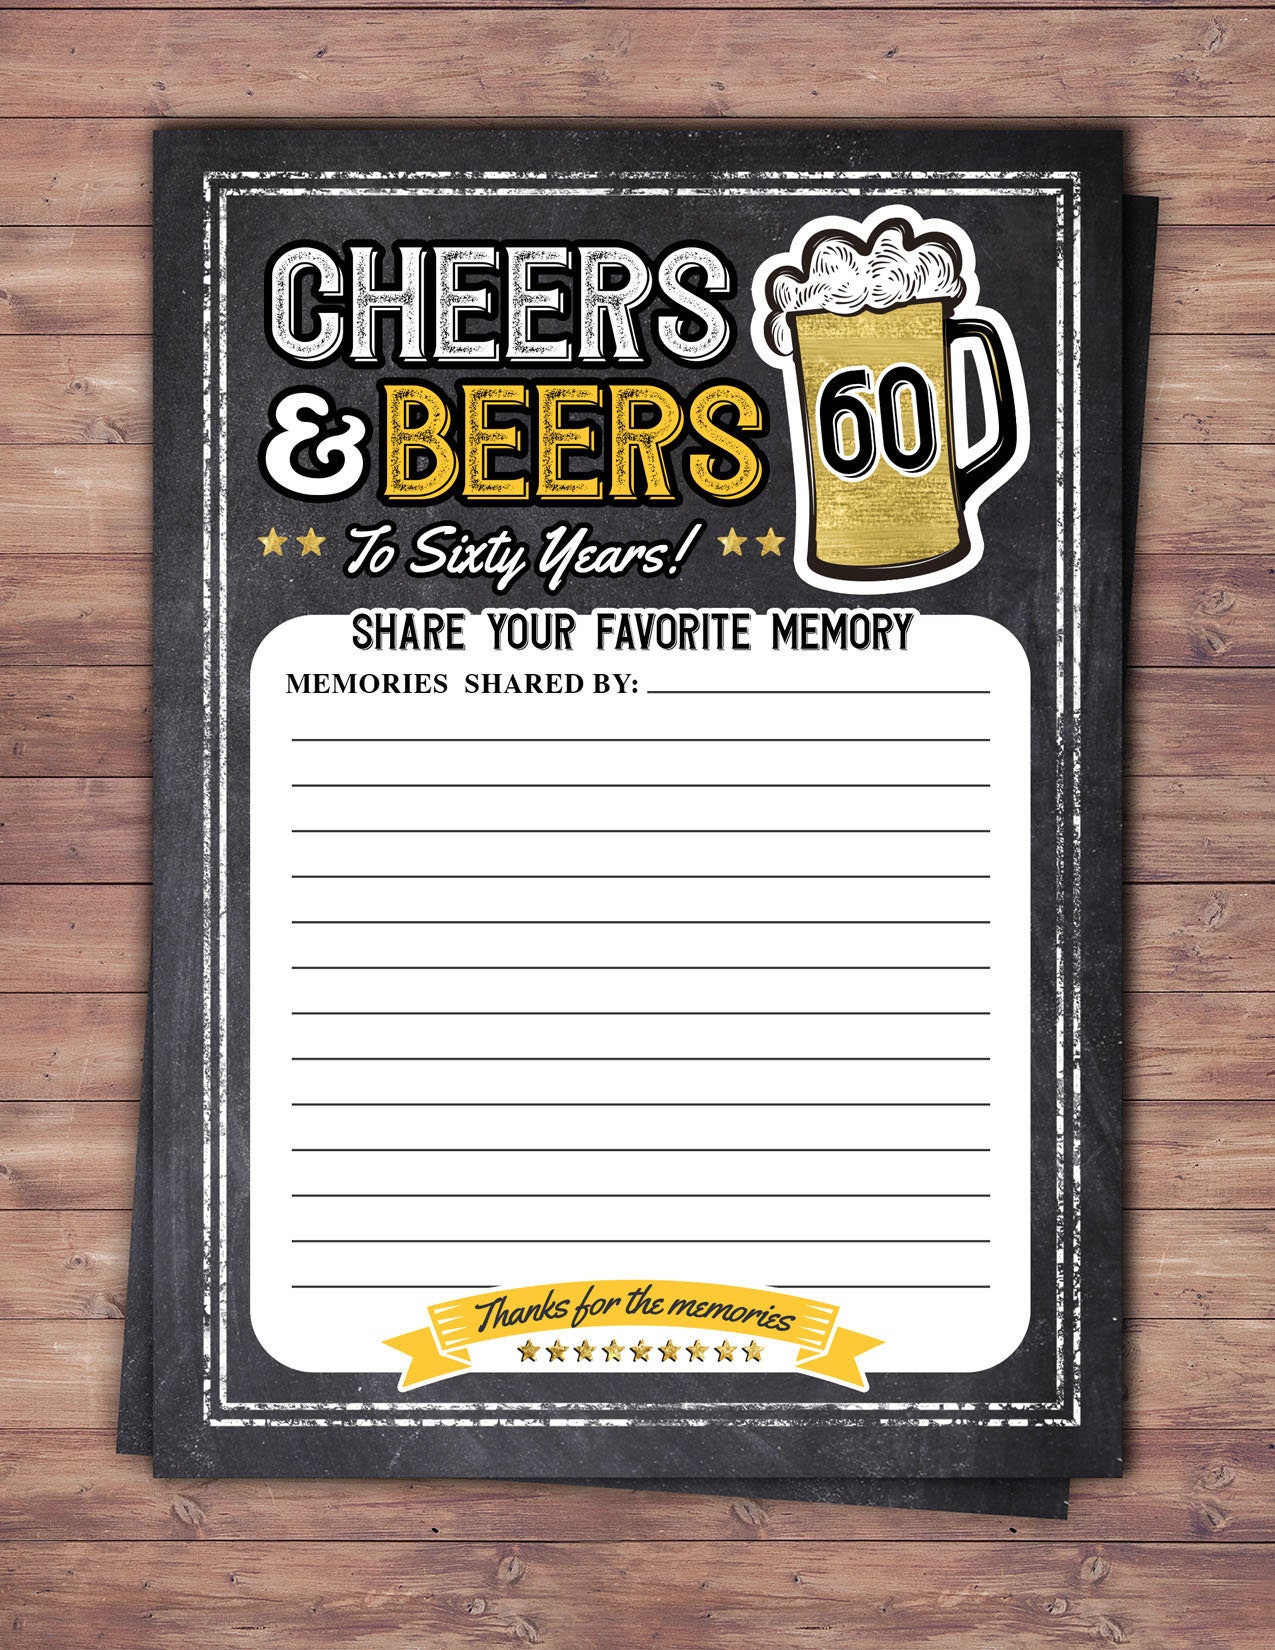 CHEERS
& BEERS
60
To Sixty Years!
SHARE YOUR FAVORITE MEMORY
MEMORIES SHARED BY:
Thanks for the memories